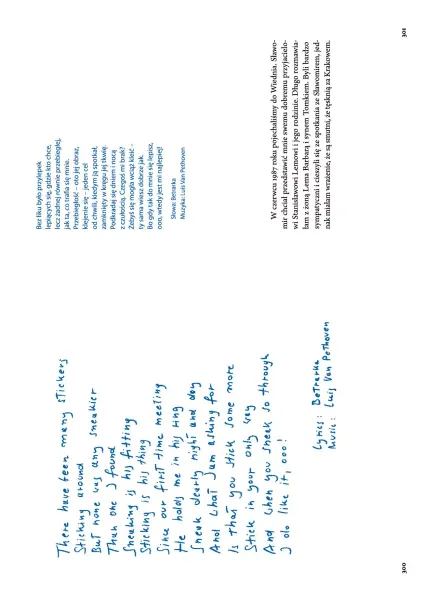 There have been many stickers
Sticking around
But none was any sneakier
Than one I found
Sneaking is his fitting
Sticking is his thing
Since our first time meeting
He holds me in his ring
Sneak dearly night and day
And what I am asking for
Is that you stick some more
Stick in your only way
And when you sneak so through
I do like it, ooo!
Lyrics: BeTrarka
Music: Luis Van PeThoven
300
Bez liku było przylepek
lepiących się, gdzie kto chce,
lecz żadnej równie przebiegłej,
jak ta, co trafiła się mnie.
Przebiegłość – oto jej obraz,
klejenie się – jeden cel
od chwili, kiedym ją spotkał,
zamknięty w kręgu jej tkwię.
Podkradaj się dniem i nocą
z czułością. Czegoś mi brak?
Żebyś się mogła wciąż kleić –
ty sama wiesz dobrze jak.
Bo gdy tak do mnie się lepisz,
ooo, wtedy jest mi najlepiej!
Słowa: Betrarka
Muzyka: Luis Van Pethoven
W czerwcu 1987 roku pojechaliśmy do Wiednia. Sławo-
mir chciał przedstawić mnie swemu dobremu przyjacielo-
wi Stanisławowi Lemowi i jego rodzinie. Długo rozmawia-
łam z żoną Lema Barbarą i synem Tomkiem. Byli bardzo
sympatyczni i cieszyli się ze spotkania ze Sławomirem, jed-
nak miałam wrażenie, że są smutni, że tęsknią za Krakowem.
301